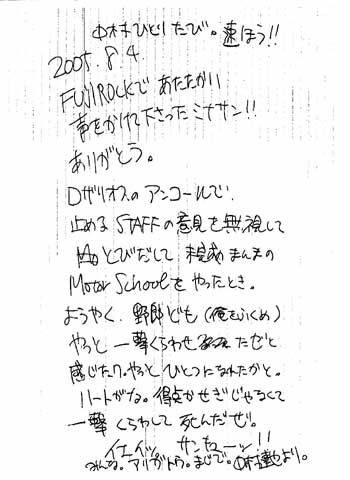 中村ひとりたび。速ほう!!
2005.8.4.
FUJIROCKで あたたかい
声をかけて下さったミナサン!!
ありがとう。
ロザリオスのアンコールで、
止める STAFFの意見を無視して
とびだして 未完成まんまの
Motor Schoolを やったとき。
ようやく、野郎ども(俺をふくめ)
やっと 一撃くらわせ たぜと
感じたり。やっとひとつになれたかと。
ハートがな。得点かせぎじゃなくて
一撃 くらわして 死んだぜ。
イエイッ サンキューッ!!
みんな。アリガトウ。まじで。中村 より。